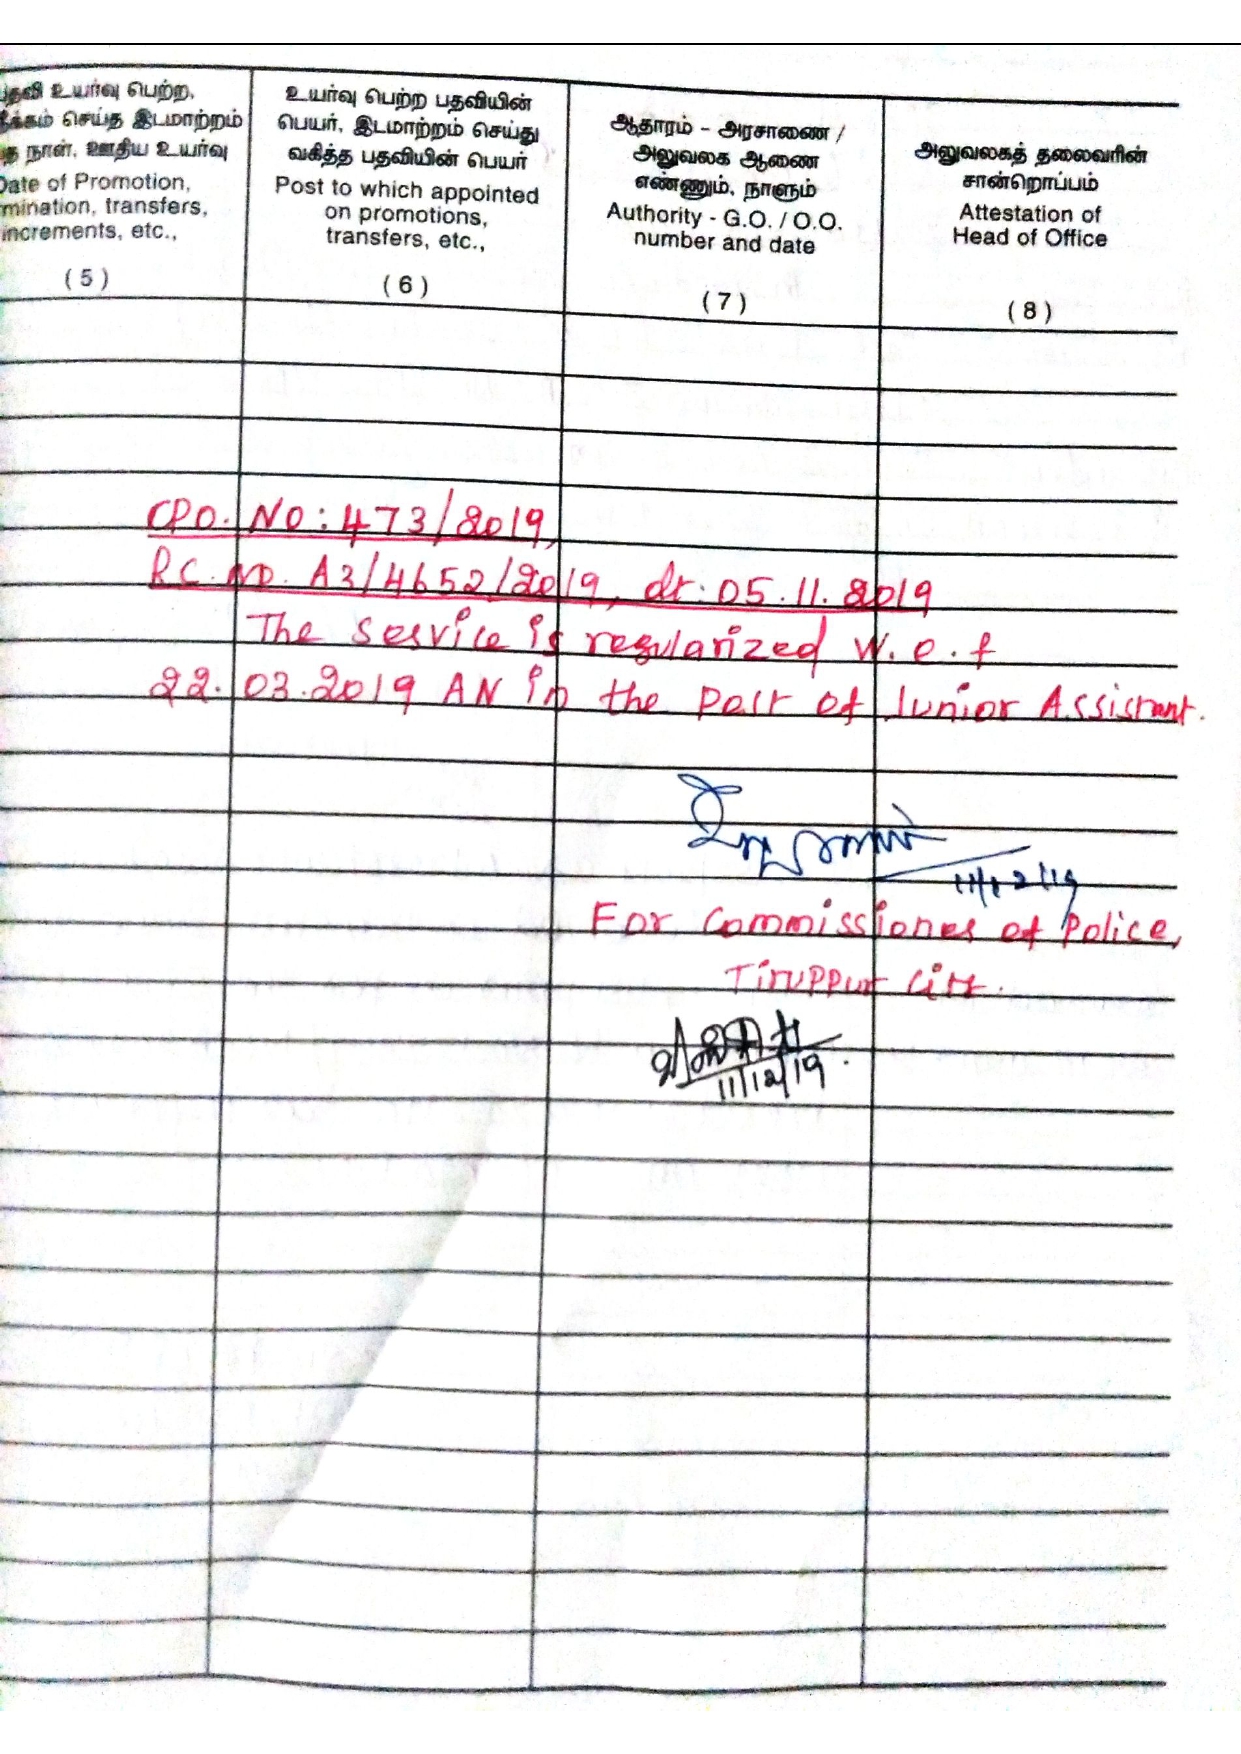 தவி உயர்வு பெற்ற,
நீக்கம் செய்த இடமாற்றம்
நாள், ஊதிய உயர்வு
Date of Promotion,
mination, transfers,
increments, etc.,
( 5 )
உயர்வு பெற்ற பதவியின்
பெயர், இடமாற்றம் செய்து
வகித்த பதவியின் பெயர்
Post to which appointed
on promotions,
transfers, etc.,
( 6 )
ஆதாரம் - அரசாணை /
அலுவலக ஆணை
எண்ணும், நாளும்
Authority - G.O. / O.O.
number and date
( 7 )
அலுவலகத் தலைவரின்
சான்றொப்பம்
Attestation of
Head of Office
( 8 )
CPO. NO: 473/2019,
R.C. NO. A3/4652/2019, dt: 05.11.2019
The service is regularized w.e.f
22.03.2019 AN in the post of Junior Assistant.
11/12/19
For Commissioner of Police,
Tiruppur City.
11/12/19